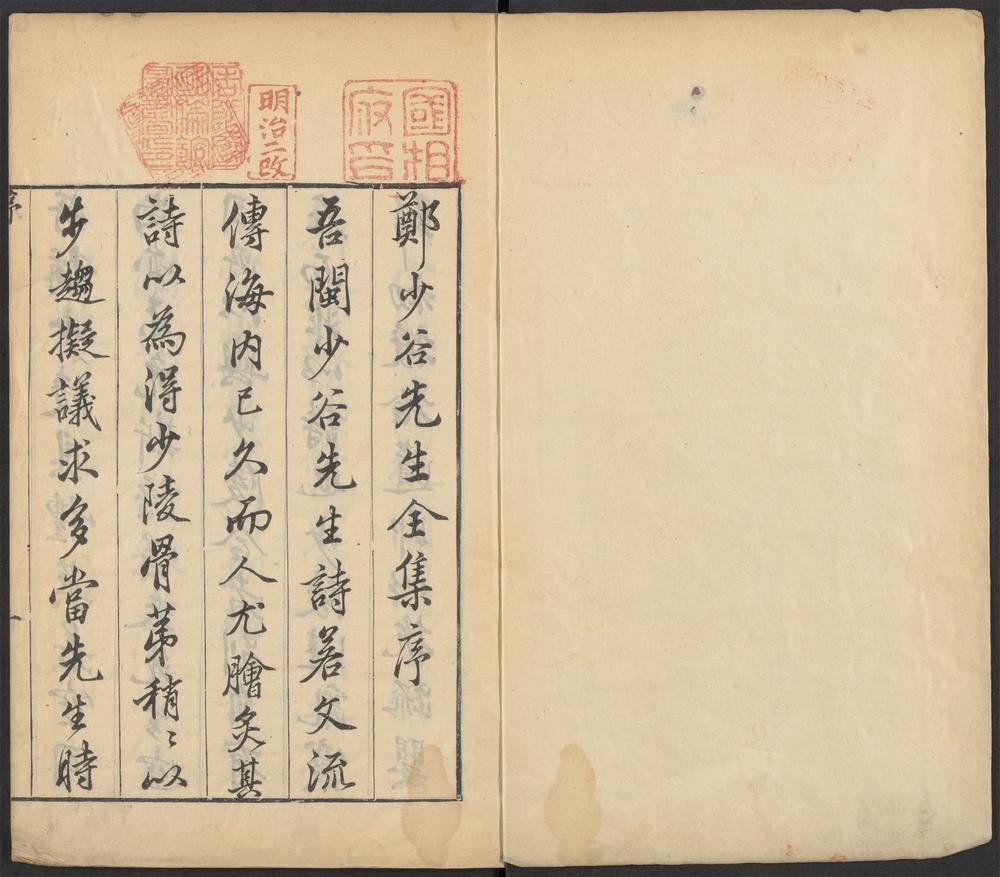 鄭少谷先生全集序
吾閩少谷先生詩若文流
傳海内已久而人尤膾炙其
詩以為淂少陵骨苐稍〻以
步趨擬議求多當先生時
序
一
國相
府印
明治二改